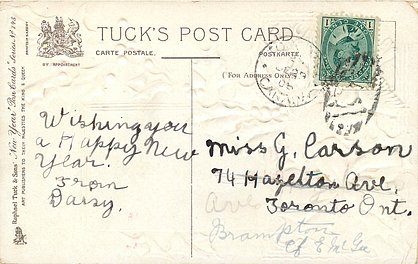 TUCK'S POST CARD
CARTE POSTALE.
POSTKARTE.
(FOR ADDRESS ONLY.)
BY APPOINTMENT
Raphael Tuck & Sons' "New Year" Post Cards Series Nº
ART PUBLISHERS TO THEIR MAJESTIES THE KING & QUEEN
1
1
Wishing you
a Happy New
Year.
From
Daisy.
Miss G. Carson
74 Hazelton Ave.
Toronto Ont.
Brampton